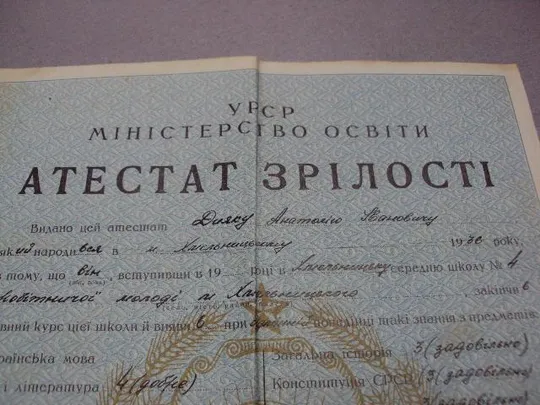 УРСР
МІНІСТЕРСТВО ОСВІТИ
АТЕСТАТ ЗРІЛОСТІ
Видано цей атестат Дияку Анатолію Івановичу
який народився в м. Хмельницькому 1936 року,
в тому, що він, вступивши в 19 році в Хмельницьку середню школу № 4
робітничої молоді м Хмельницького, закінчив
повний курс цієї школи й виявив при поведінці такі знання з предметів:
українська мова
і література 4 (добре)
Загальна історія 3 (задовільно)
Конституція СРСР 3 (задовільно)
3 (задовільно)